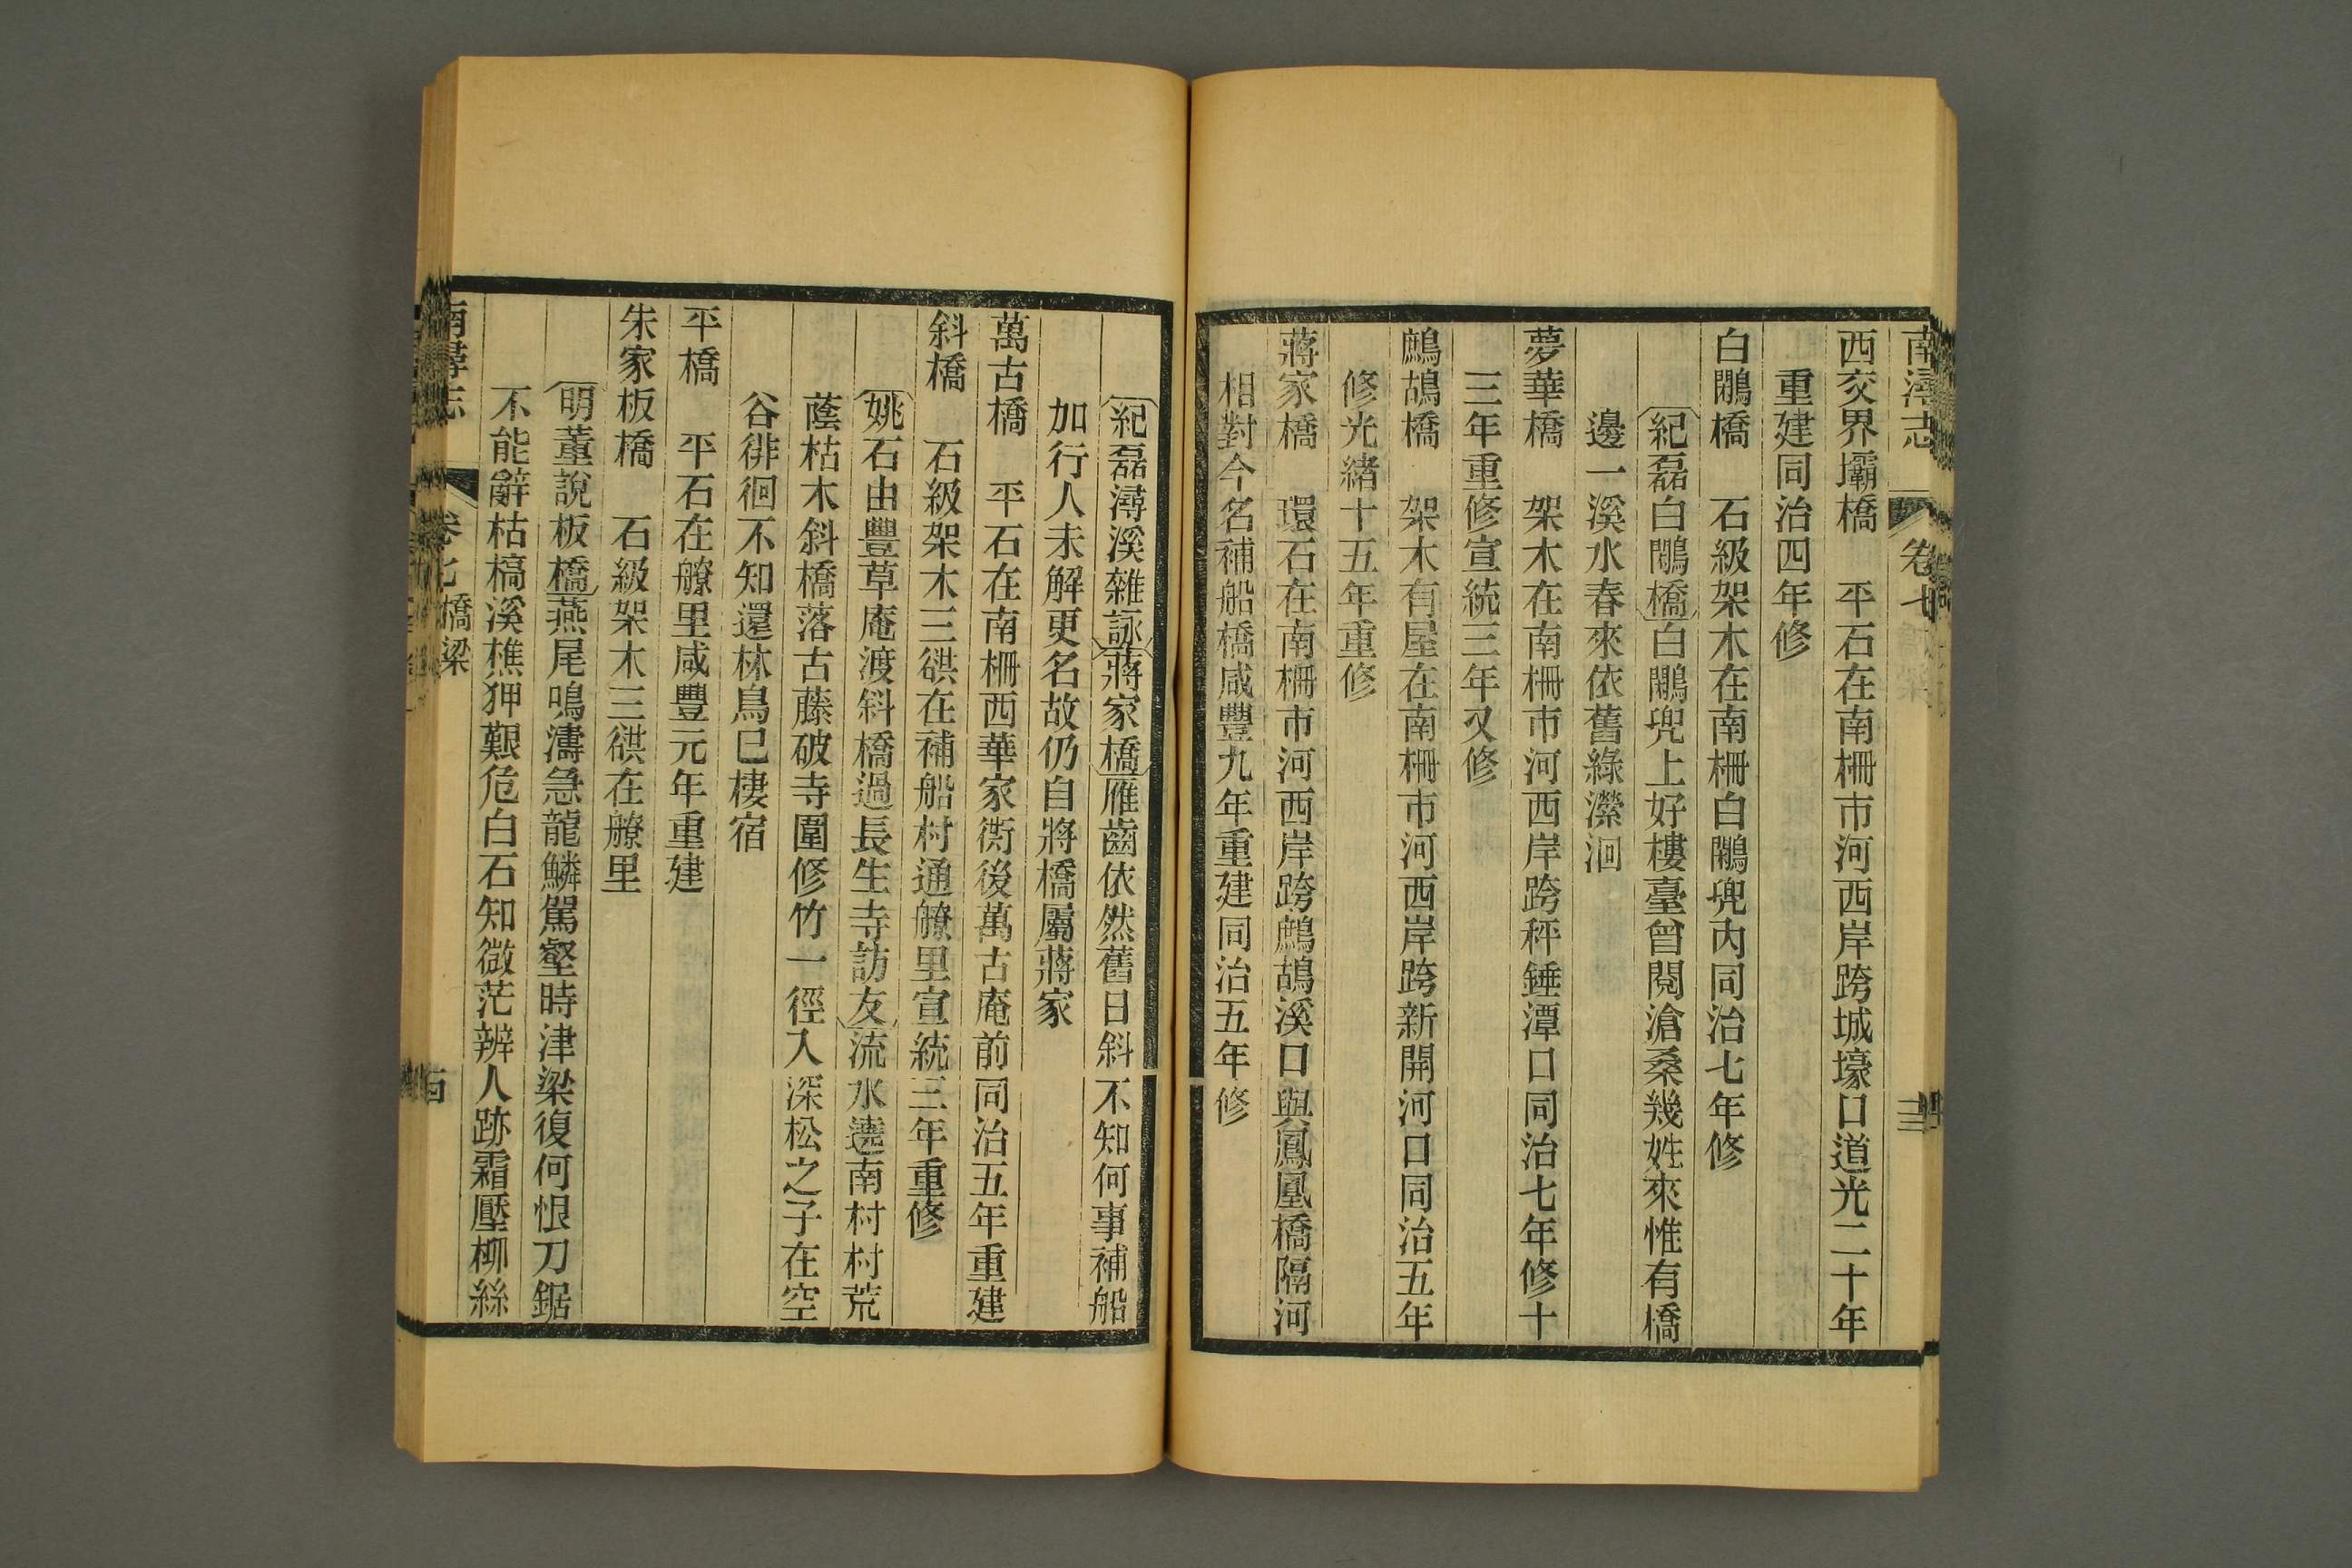 南潯志 卷七 三
西交界壩橋 平石在南柵市河西岸跨城壕口道光二十年
重建同治四年修
白鷴橋 石級架木在南柵白鷴兜內同治七年修
紀磊白鷴橋白鷴兜上好樓臺曾閱滄桑幾姓來惟有橋
邊一溪水春來依舊綠瀠洄
夢華橋 架木在南柵市河西岸跨秤錘潭口同治七年修十
三年重修宣統三年又修
鷓鴣橋 架木有屋在南柵市河西岸跨新開河口同治五年
修光緒十五年重修
蔣家橋 環石在南柵市河西岸跨鷓鴣溪口與鳳凰橋隔河
相對今名補船橋咸豐九年重建同治五年修
紀磊潯溪雜詠蔣家橋雁齒依然舊日斜不知何事補船
加行人未解更名故仍自將橋屬蔣家
萬古橋 平石在南柵西華家衖後萬古庵前同治五年重建
斜橋 石級架木三谼在補船村通艌里宣統三年重修
姚石由豐草庵渡斜橋過長生寺訪友流水遶南村村荒
蔭枯木斜橋落古藤破寺圍修竹一徑入深松之子在空
谷徘徊不知還林鳥已棲宿
平橋 平石在里咸豐元年重建
朱家板橋 石級架木三在里
明董說板橋燕尾鳴濤急龍鱗駕壑時津梁復何恨刀鋸
不能辭枯槁溪樵狎艱危白石知微茫辨人跡霜壓柳絲
南潯志 卷七 橋梁